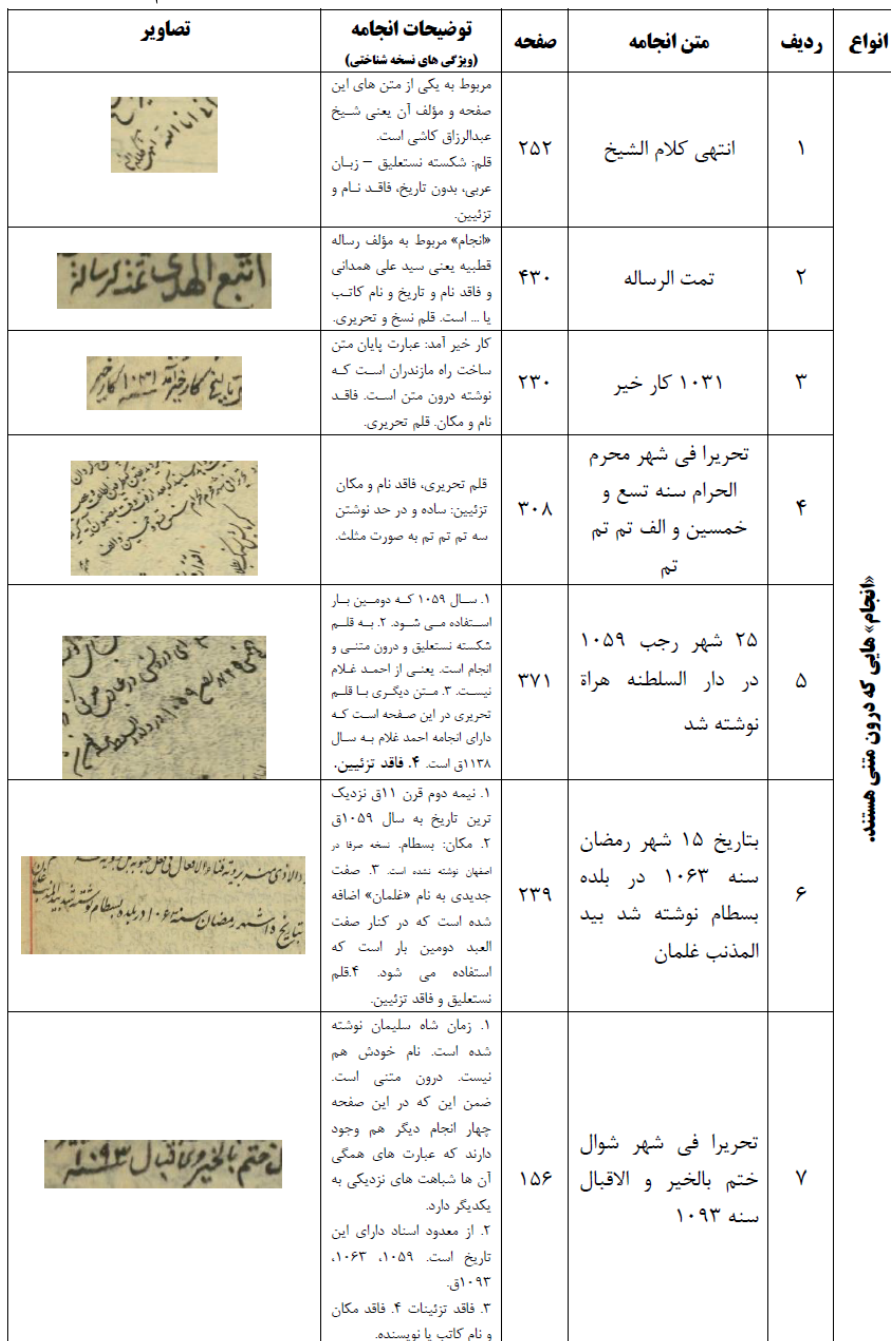 انواع ردیف متن انجامه صفحه توضیحات انجامه تصاویر
(ویژگی های نسخه شناختی)
«انجام» هایی که درون متنی هستند.
۱
انتهی کلام الشیخ
۲۵۲
مربوط به یکی از متن های این
صفحه و مؤلف آن یعنی شیخ
عبدالرزاق کاشی است.
قلم: شکسته نستعلیق – زبان
عربی، بدون تاریخ، فاقد نام و
تزئیین.
۲
تمت الرساله
۴۳۰
«انجام» مربوط به مؤلف رساله
قطبیه یعنی سید علی همدانی
و فاقد نام و تاریخ و نام کاتب
یا ... است. قلم نسخ و تحریری.
اتبع الهدی تمت الرسالة
۳
۱۰۳۱ کار خیر
۲۳۰
کار خیر آمد: عبارت پایان متن
ساخت راه مازندران است که
نوشته درون متن است. فاقد
نام و مکان. قلم تحریری.
کار خیر آمد ۱۰۳۱ کار خیر
۴
تحریرا فی شهر محرم
الحرام سنه تسع و
خمسین و الف تم تم
تم
۳۰۸
قلم تحریری، فاقد نام و مکان
تزئیین: ساده و در حد نوشتن
سه تم تم تم به صورت مثلث.
۵
۲۵ شهر رجب ۱۰۵۹
در دار السلطنه هراة
نوشته شد
۳۷۱
۱. سال ۱۰۵۹ که دومین بار
استفاده می شود. ۲. به قلم
شکسته نستعلیق و درون متنی و
انجام است. یعنی از احمد غلام
نیست. ۳. متن دیگری با قلم
تحریری در این صفحه است که
دارای انجامه احمد غلام به سال
۱۱۳۸ق است. ۴. فاقد تزئیین.
۶
بتاریخ ۱۵ شهر رمضان
سنه ۱۰۶۳ در بلده
بسطام نوشته شد بید
المذنب غلمان
۲۳۹
۱. نیمه دوم قرن ۱۱ق نزدیک
ترین تاریخ به سال ۱۰۵۹ق
۲. مکان: بسطام. نسخه صرفا در
اصفهان نوشته نشده است. ۳. صفت
جدیدی به نام «غلمان» اضافه
شده است که در کنار صفت
العبد دومین بار است که
استفاده می شود. ۴.قلم
نستعلیق و فاقد تزئیین.
۷
تحریرا فی شهر شوال
ختم بالخیر و الاقبال
سنه ۱۰۹۳
۱۵۶
۱. زمان شاه سلیمان نوشته
شده است. نام خودش هم
نیست. درون متنی است.
ضمن این که در این صفحه
چهار انجام دیگر هم وجود
دارند که عبارت های همگی
آن ها شباهت های نزدیکی به
یکدیگر دارد.
۲. از معدود اسناد دارای این
تاریخ است. ۱۰۵۹، ۱۰۶۳،
۱۰۹۳ق.
۳. فاقد تزئینات ۴. فاقد مکان
و نام کاتب یا نویسنده.
ختم بالخیر و الاقبال سنه ۱۰۹۳